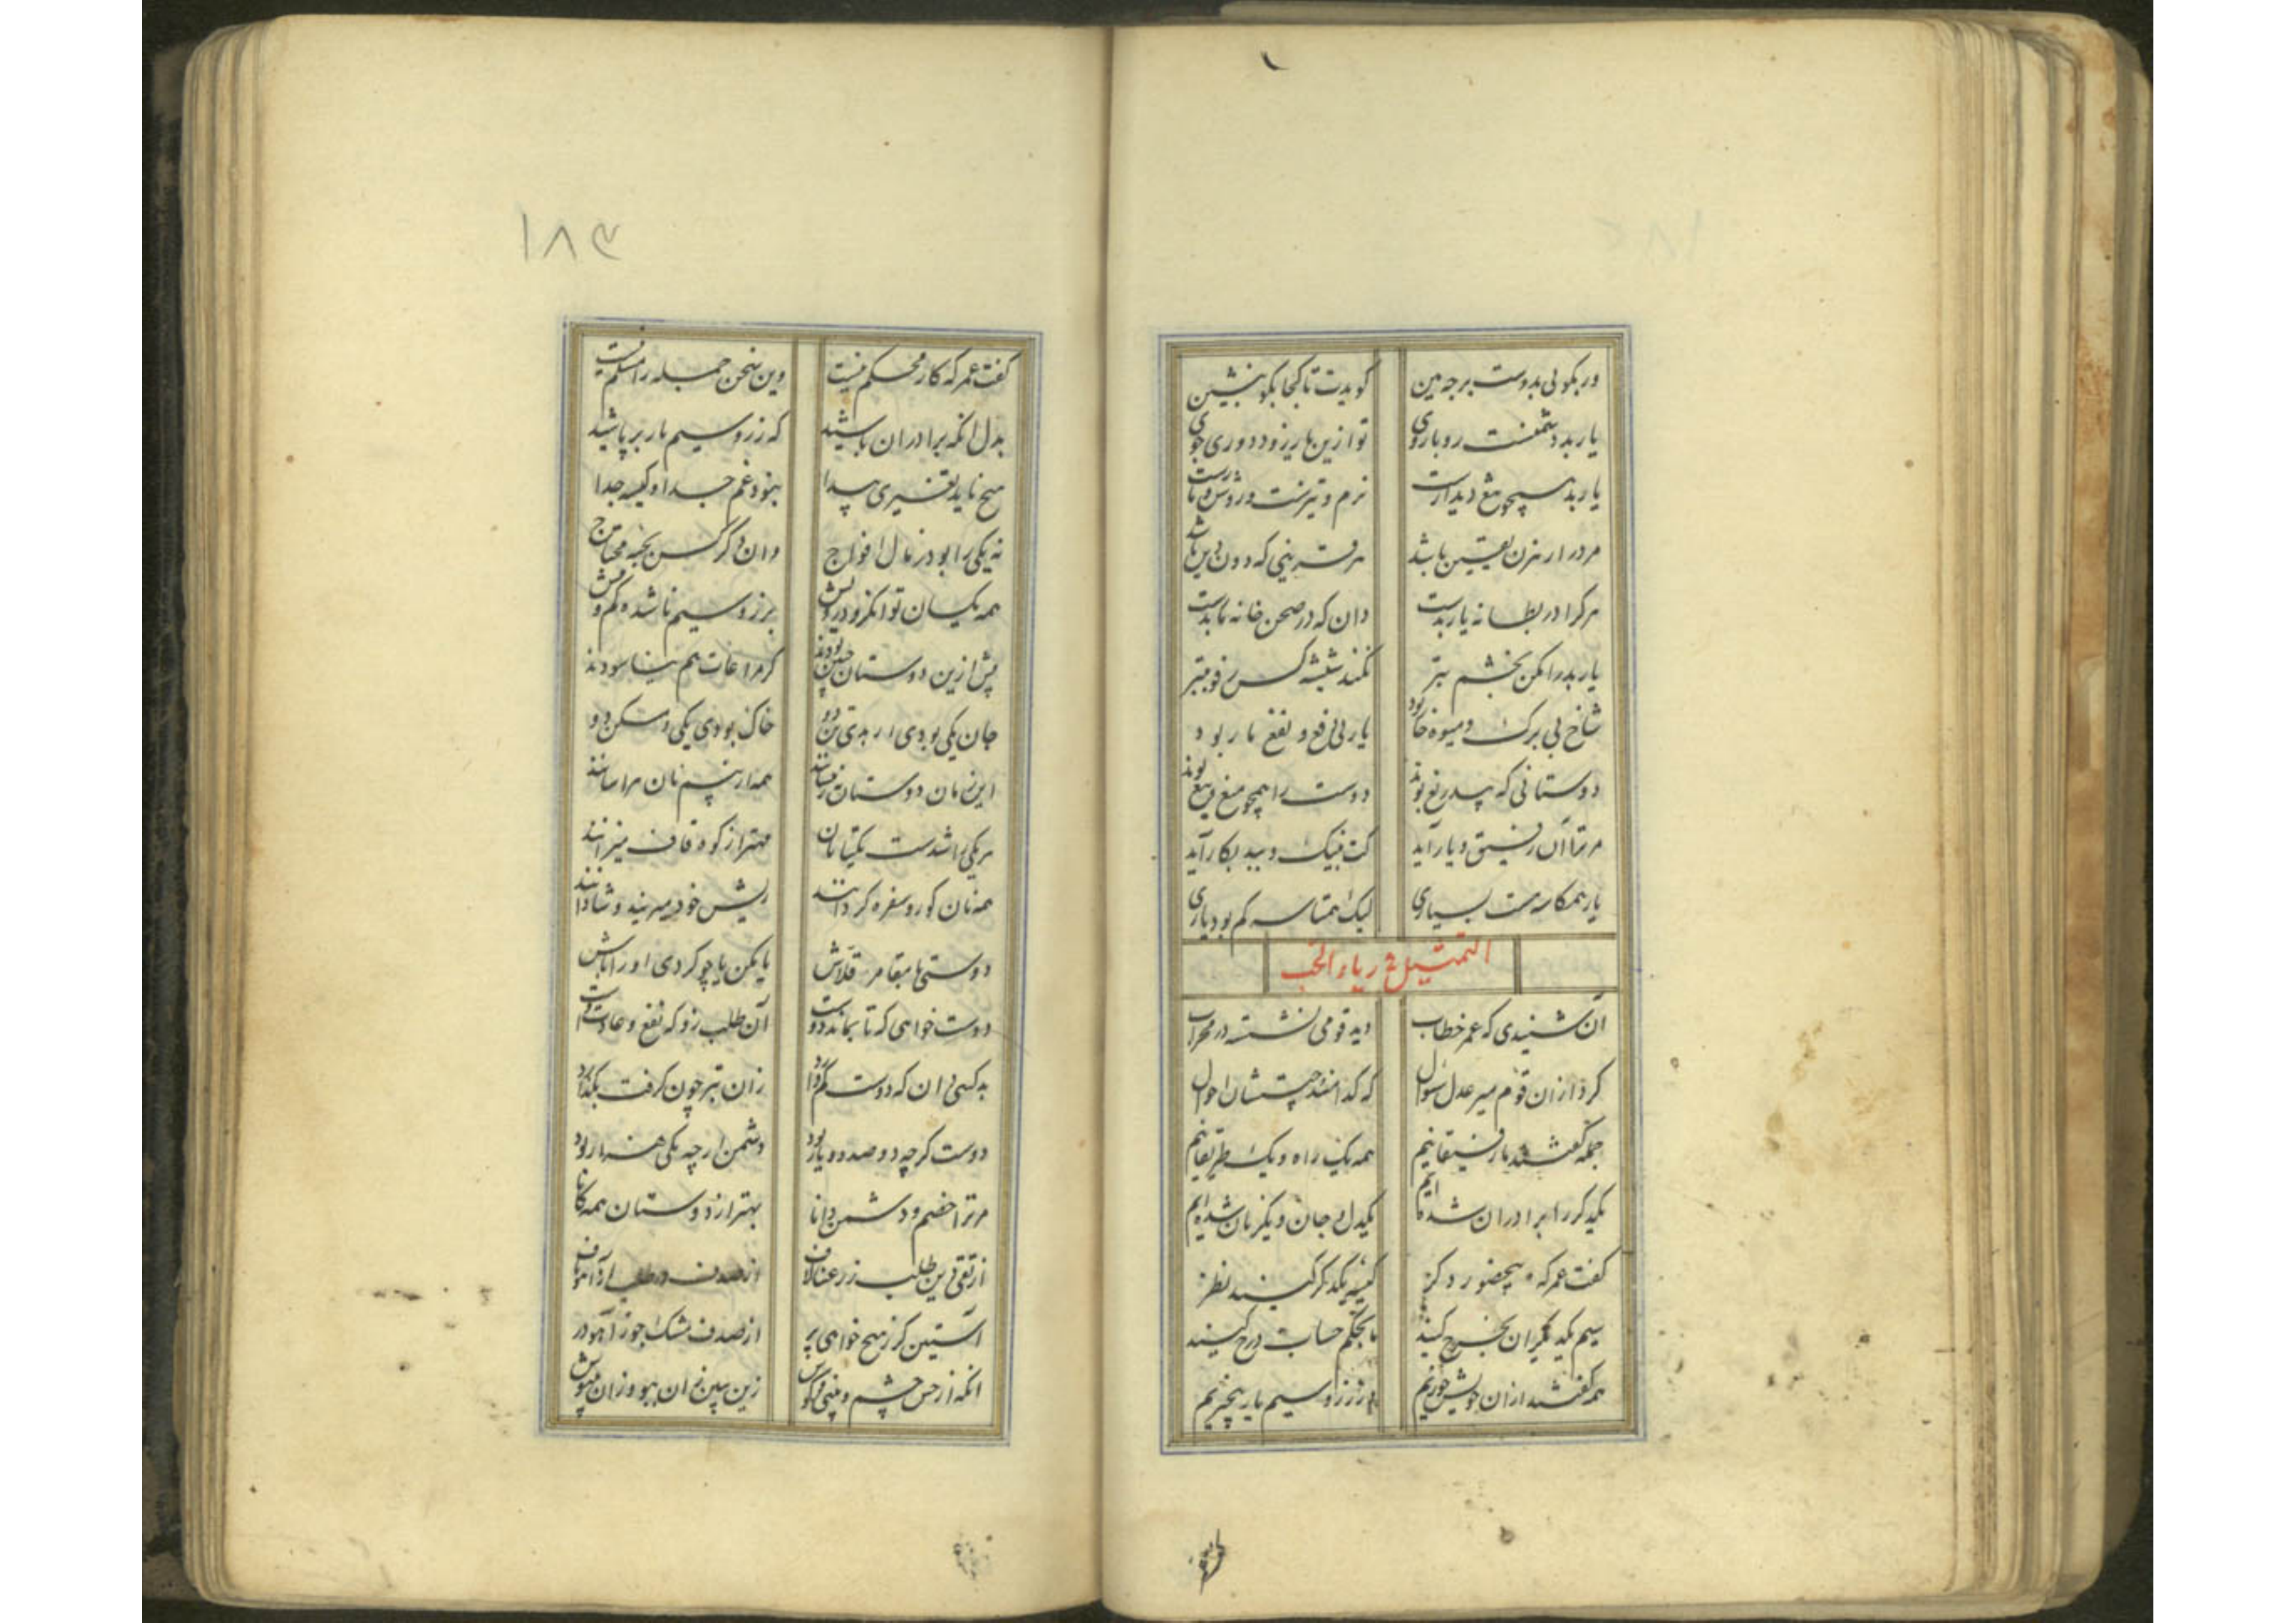 ور بگویی بدوست برجه هین گویدت تا کجا بگو بنشین
یار بد دشمنست رو با روی تو ازین یار زود دوری جوی
یار بد همچو تیغ دیدارست نرم و تیزست و روشن و
مرد را رهزن یقین باشد هر قرینی که دون دین باشد
هر کرا در بطانه یار بدست دان که در صحن خانه مار بدست
یار بد را مکن بخشم بتر نکند شیشه کس
شاخ بی برگ و میوه خار بود یار بی دفع و نفع مار بود
دوستانی که بیدریغ بوند دوست را همچو میغ و تیغ بوند
مر ترا آن رفیق و یار آید کت بنیک و ببد بکار آید
یار همکاسه هست بسیاری لیک همتاسه کم بود یاری
التمثیل فی ریاء الحب
آن شنیدی که عمر خطاب دید قومی نشسته در محراب
کرد ازان قوم میر عدل سوال که کدامند چیستشان احوال
جمله گفتند ما رفیقانیم همه یک راه و یک طریقانیم
یکدگر را برادران شده ایم یکدل و جان و یکزبان شده ایم
گفت عمر که بیحضور دگر کیسه یکدگر کنید نظر
سیم یکدیگران بخرج کنید بی حساب درج کنید
همه گفتند ازان خویش خوریم زر و سیم یار بیخبریم
۱۸۳
گفت عمر که کار محکم نیست وین سخن جمله را مسلم نیست
بدل آنکه برادران باشید که زر و سیم یار بر پاشید
هیچ ناید تغیری پیدا نبود غم جدا و کیسه جدا
نه یکی را بود ز مال افواج وان دگر کس بحبه محتاج
همه یکسان توانگر و درویش بزر و سیم ناشده کم و بیش
پیش ازین دوستان چنین بودند کز مراعات هم نیاسودند
جان یکی بودی ار بدی تن دو خاک بودی یکی و مسکن دو
این زمان دوستان همه از بیم نان هراسانند
هر یکی را شدست یکتا نان مهتر از کوه قاف میزانند
همه نان کور و سفره گردانند ریش خود میریند و شادانند
دوستی با مقامر و قلاش یا مکن یا چو کردی او را باش
دوست خواهی که تا بماند دوست آن طلب زو که نفع و عادت اوست
بد کسی دان که دوست کم دارد زان بتر چون گرفت بگذارد
دوست گرچه دو صد دو یار بود دشمن ارچه یکی هزار بود
مر ترا خصم و دشمن دانا بهتر از دوستان همه کانا
از تقی دین طلب ز رعنا لاف از صدف در طلب ز آهو ناف
آستین گر ز هیچ خواهی پر از صدف مشک جو ز آهو در
آنکه از حس چشم و بینی و گوش زین ببین زان ببو و زان بنیوش